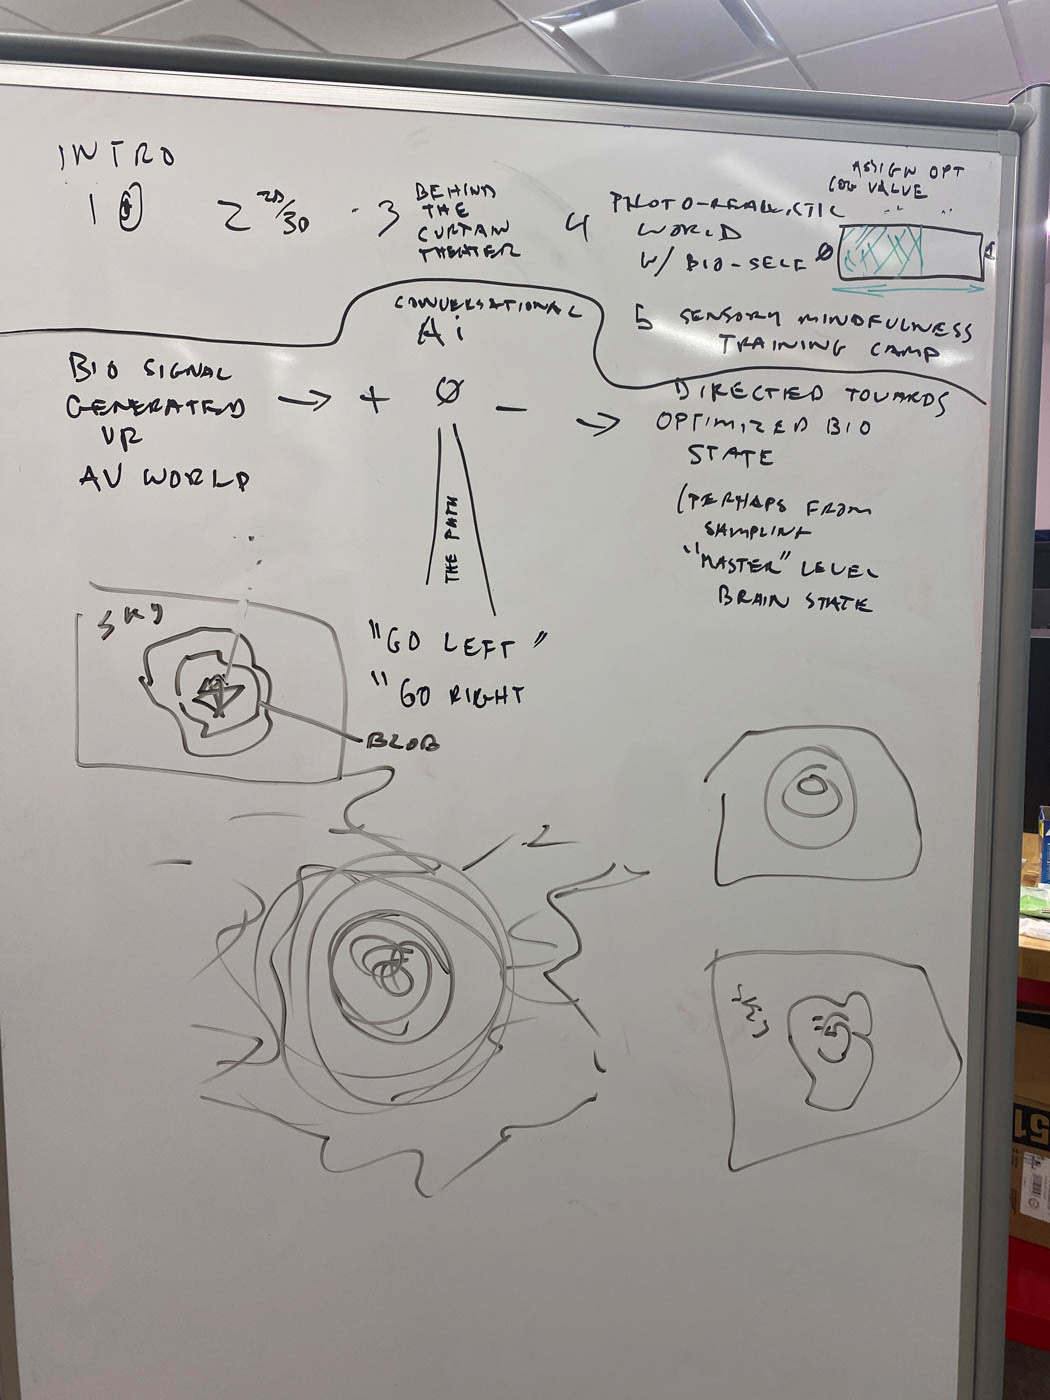 INTRO
1 0
2 20/30
3 BEHIND
THE
CURTAIN
THEATER
4 PHOTO-REALISTIC
WORLD
W/ BIO-SELF
ASSIGN OPT
COG VALUE
Ø 1
5 SENSORY MINDFULNESS
TRAINING CAMP
CONVERSATIONAL
Ai
BIO SIGNAL
GENERATED
VR
AV WORLD
→ + Ø − →
THE PATH
"GO LEFT"
"GO RIGHT
DIRECTED TOWARDS
OPTIMIZED BIO
STATE
(PERHAPS FROM
SAMPLING
"MASTER" LEVEL
BRAIN STATE
SKY
BLOB
SKY
51